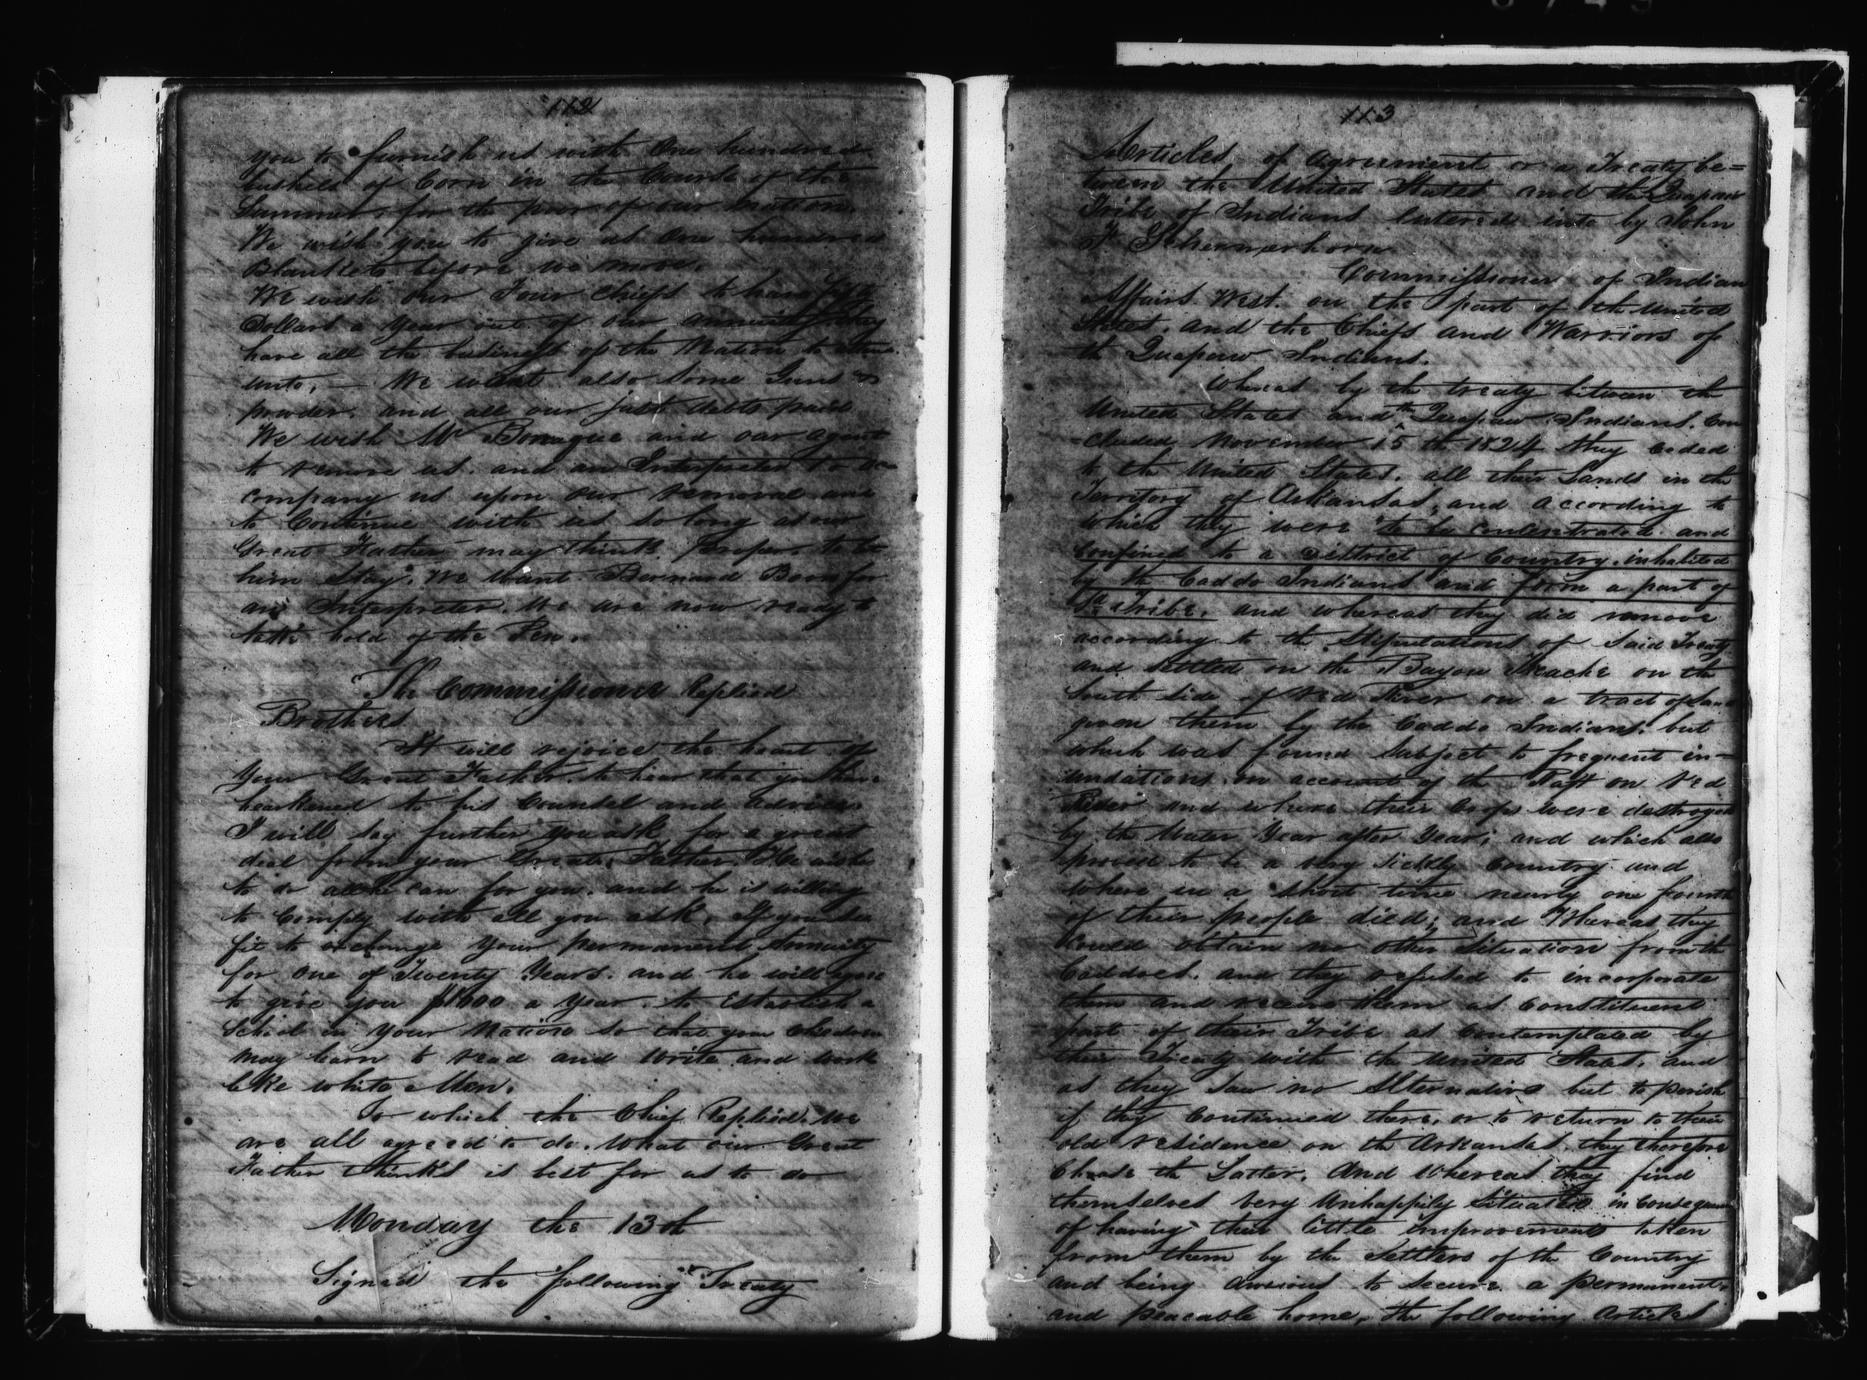 112
you to furnish us with One hundred
bushels of Corn in the Course of the
Summer for the poor of our nation.
We wish you to give us One hundred
Blankets before we move.
We wish our Four Chiefs to have Fifty
Dollars a Year out of our annuity they
have all the business of the Nation to attend
unto, — We want also some Guns &
powder. and all our just debts paid
We wish Mr and our agent
to remove us. and an Interpreter to ac
company us upon our removal and
to Continue with us so long as our
Great Father may think proper to let
him Stay. We want Bernard for
an Interpreter. We are now ready to
take hold of the Pen.
The Commissioner Replied
Brothers
It will rejoice the heart of
Your Great Father to hear that you have
hearkened to his Counsel and advice
I will say further you ask for a great
deal from your Great Father. He wishes
to do all he can for you. and he is willing
to Comply with all you ask, If you see
fit to exchange Your permanent Annuity
for one of Twenty Years. and he will agree
to give you $1000 a Year. to Establish a
School in Your Nation so that your Children
may learn to read and write and work
like white Men.
To which the Chief Replied. We
are all agreed to do. What our Great
Father thinks is best for us to do
Monday the 13th
Signed the following Treaty
113
Articles of agreement or a Treaty be=
tween the United States and the Quapaw
Tribe of Indians Entered into by John
F Schermerhorn
Commissioner of Indian
Affairs West. on the part of the United
States. and the Chiefs and Warriors of
the Quapaw Indians.
Whereas by the treaty between the
United States and the Quapaw Indians. Con
cluded November 15th 1824 they Ceded
to the United States, all their Lands in the
Territory of Arkansas, and according to
which they were "to be concentrated and
confined to a District of Country inhabited
by the Caddo Indians and form a part of
Sd Tribe, and whereas they did remove
according to the Stipulations of Said Treaty
and settled on the Bayou Treache on the
South side of Red River on a tract of land
given them by the Caddo Indians. but
which was found Subject to frequent in-
undations. on account of the Raft on Red
River and where their Crops were destroyed
by the Water Year after Year; and which also
proved to be a very sickly Country and
where in a short time nearly one fourth
of their people died; and Whereas they
Could obtain no other Situation from the
Caddoes. and they refused to incorporate
them and receive them as Constituent
part of their Tribe as Contemplated by
their Treaty with the United States. and
as they Saw no Alternative but to perish
if they Continued there, or to return to their
old residence on the Arkansas. they therefore
Chose the Latter. And Whereas they find
themselves very Unhappily Situated in Consequence
of having their little improvements taken
from them by the Settlers of the Country
and being anxious to secure a permanent
and peacable home, the following Articles